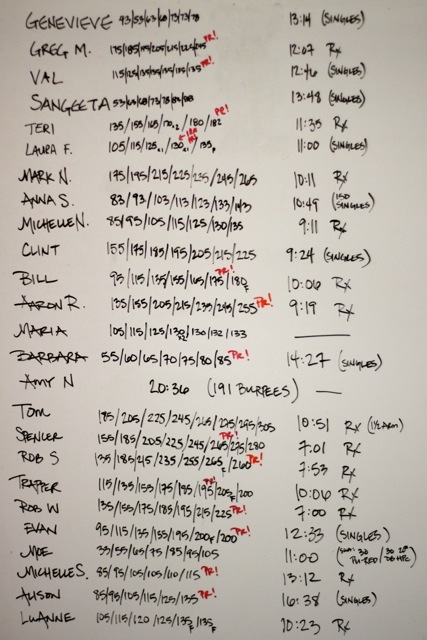 GENEVIEVE 93/53/63/68/73/73/78 13:14 (SINGLES)
GREG M. 175/185/195/205/215/225/235 PR! 12:07 Rx
VAL 115/125/135/135/135/135/135 PR! 12:46 (SINGLES)
SANGEETA 53/63/68/73/78/83/88 13:48 (SINGLES)
TERI 135/155/165/170x2/180/182 PR! 11:35 Rx
LAURA F. 105/115/125x1/130x1/135F 11:00 (SINGLES)
MARK N. 175/195/215/225/235/245/265 10:11 Rx
ANNA S. 83/93/103/113/123/133/143 10:49 (150 SINGLES)
MICHELLE N. 85/95/105/115/125/130/135 9:11 Rx
CLINT 155/175/185/195/205/215/225 9:24 (SINGLES)
BILL 95/115/135/155/165/175/180F PR! 10:06 Rx
AARON R. 135/155/205/215/235/245/255 PR! 9:19 Rx
MARIA 105/115/125/130/130/132/133 —
BARBARA 55/60/65/70/75/80/85 PR! 14:27 (SINGLES)
AMY N 20:36 (191 BURPEES) —
TOM 185/205/225/245/265/275/295/305 10:51 Rx (1/2 ARM)
SPENCER 155/185/205/225/245/265/275/280 PR! 7:01 Rx
ROB S 135/185/215/235/255/265F/260 PR! 7:53 Rx
TRAPPER 115/135/155/175/185/195/205F/200 PR! 10:06 Rx
ROB W 135/155/175/185/195/215/225 PR! 7:00 Rx
EVAN 95/115/135/155/195/200F/200 PR! 12:33 (SINGLES)
MOE 33/55/65/75/85/95/105 11:00
MICHELLE S. 85/95/105/105/110/115 PR! 13:12 Rx
ALISON 85/95/105/115/125/135 PR! 16:38 (SINGLES)
LUANNE 105/115/120/125/135F/135F 10:23 Rx